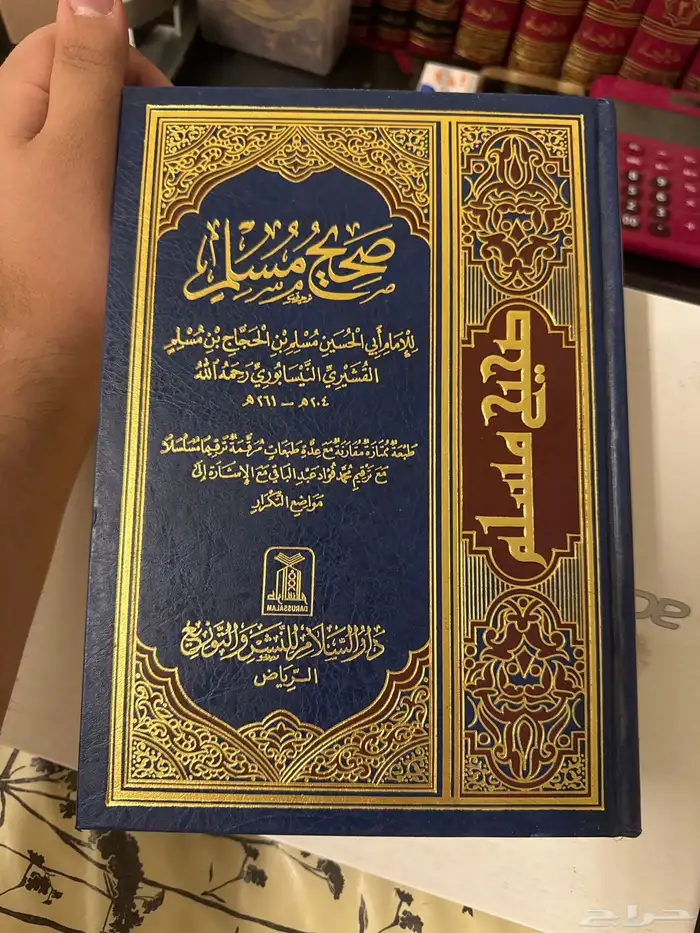 صَحِيحُ مُسْلِمٍ
لِلْإِمَامِ أَبِي الْحُسَيْنِ مُسْلِمِ بْنِ الْحَجَّاجِ بْنِ مُسْلِمٍ
الْقُشَيْرِيِّ النَّيْسَابُورِيِّ رَحِمَهُ اللّٰهُ
٢٠٤هـ – ٢٦١هـ
طَبْعَةٌ مُمْتَازَةٌ مُقَارَنَةٌ مَعَ عِدَّةِ طَبَعَاتٍ مُرَقَّمَةٌ تَرْقِيمًا مُسَلْسَلًا
مَعَ تَرْقِيمِ مُحَمَّد فُؤَاد عَبْدِ الْبَاقِي مَعَ الْإِشَارَةِ إِلَى
مَوَاضِعِ التَّكْرَارِ
DARUSSALAM
دَارُ السَّلَامِ لِلنَّشْرِ وَالتَّوْزِيعِ
الرِّيَاض
صحيح مسلم
حراج